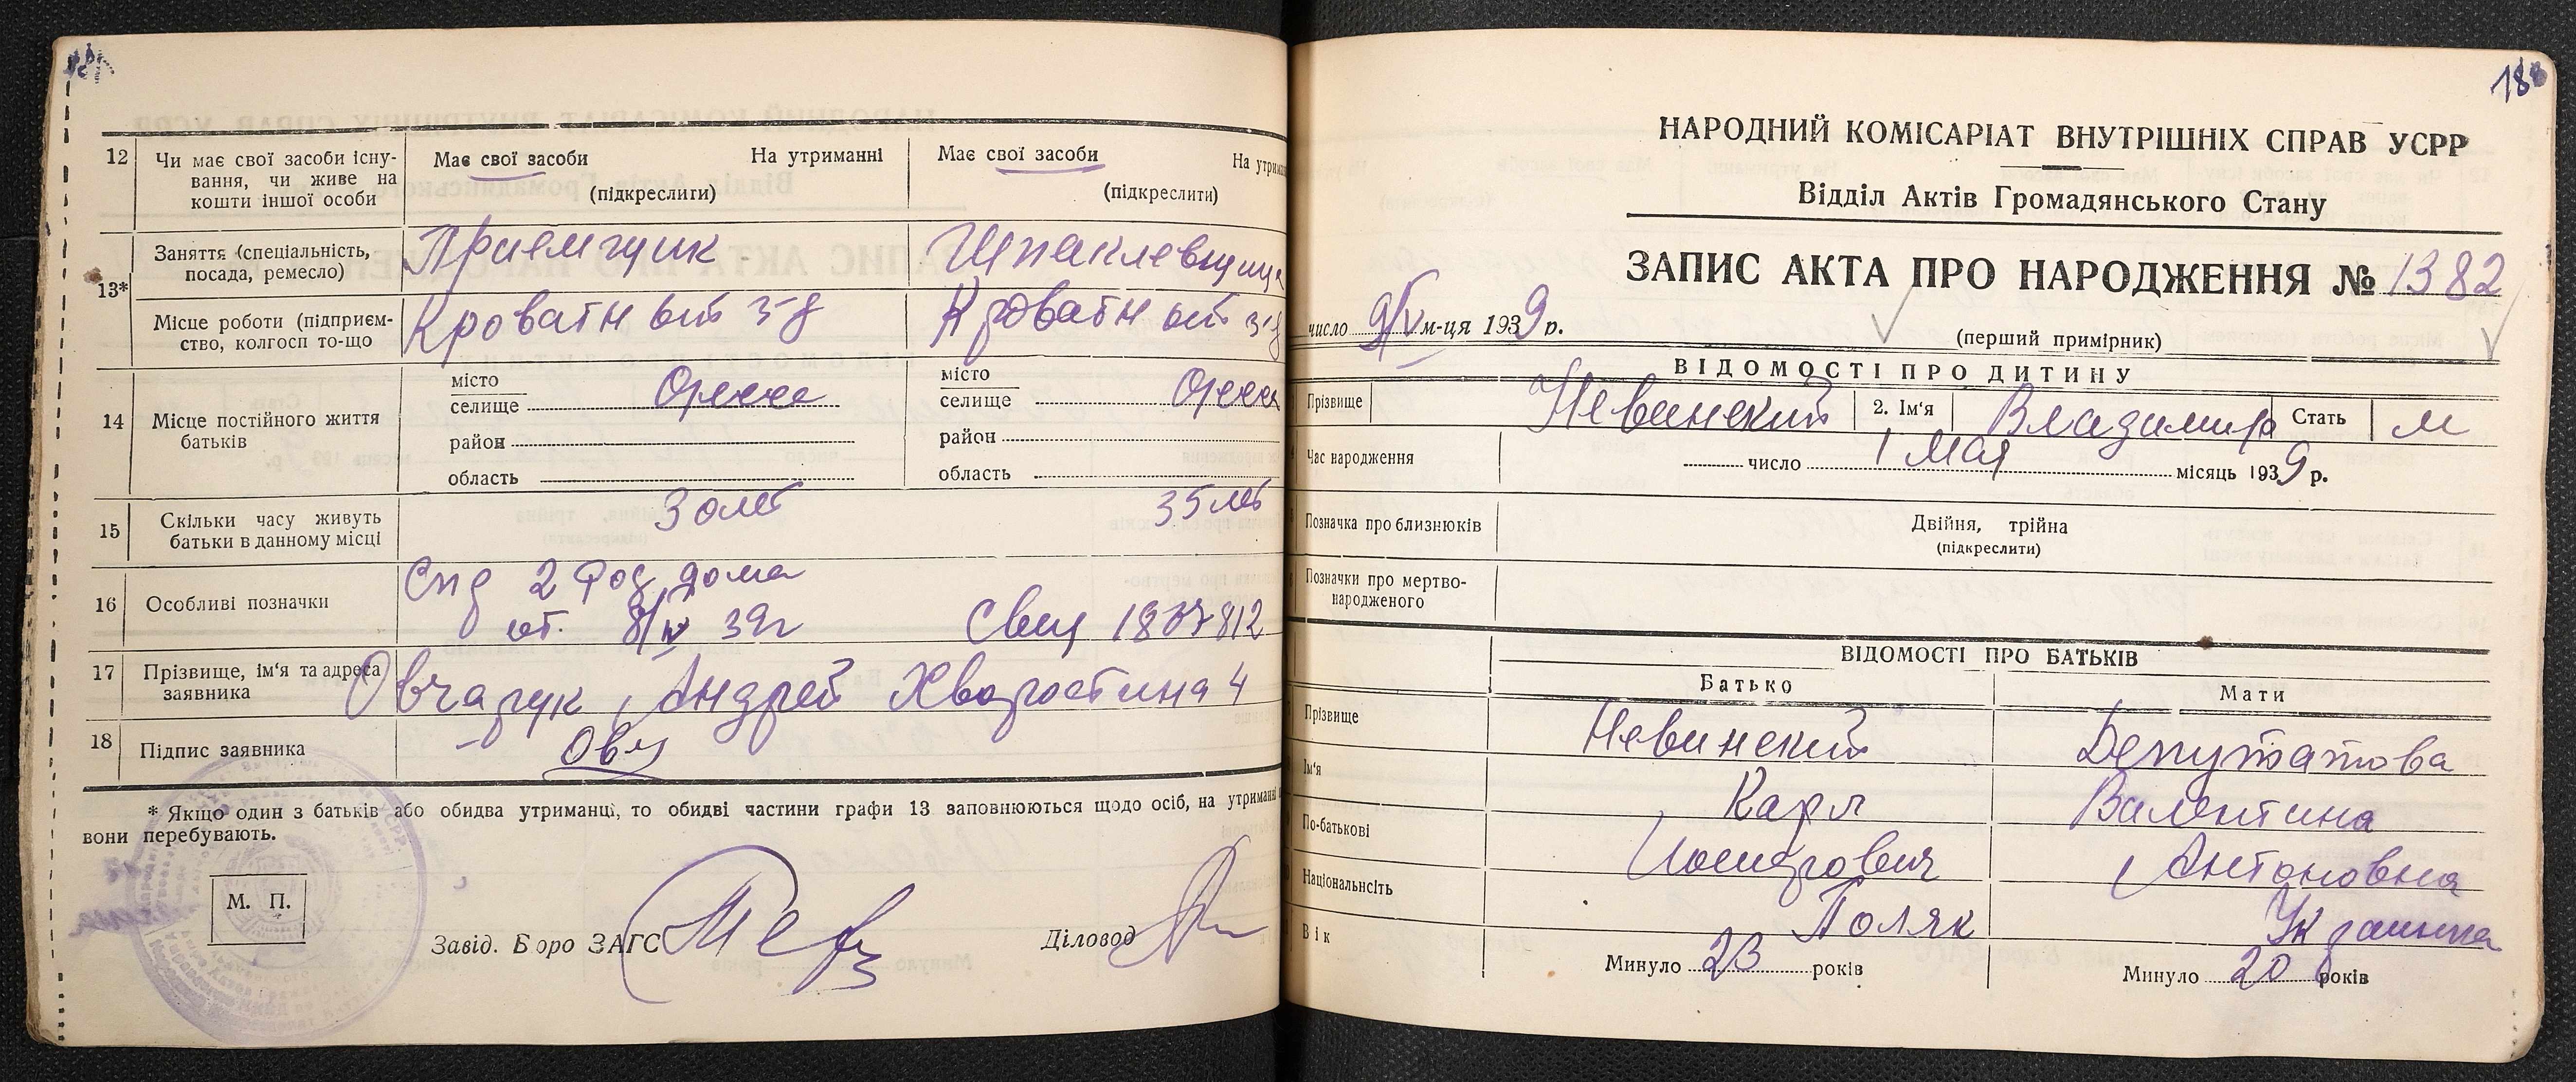 12 Чи має свої засоби існу-
вання, чи живе на
кошти іншої особи
Має свої засоби На утриманні
(підкреслити)
Має свої засоби На утрим
(підкреслити)
13*
Заняття (спеціальність,
посада, ремесло)
Приемчик
Шпаклевщица
Місце роботи (підприєм-
ство, колгосп то-що
Кроватн з-д
Кроватн з-д
14 Місце постійного життя
батьків
місто
селище Одесса
район
область
місто
селище Одесса
район
область
15 Скільки часу живуть
батьки в данному місці
3 0 лет
35 лет
16 Особливі позначки
Спр 2 Род дома
от. 8/IV 39г Свид 1837812
17 Прізвище, ім'я та адреса
заявника
Овчарук Андрей Хворостина 4
18 Підпис заявника
Овч
* Якщо один з батьків або обидва утриманці, то обидві частини графи 13 заповнюються щодо осіб, на утриманні
вони перебувають.
М. П.
Завід. Бюро ЗАГС
Діловод
188
НАРОДНИЙ КОМІСАРІАТ ВНУТРІШНІХ СПРАВ УСРР
Відділ Актів Громадянського Стану
ЗАПИС АКТА ПРО НАРОДЖЕННЯ № 1382
число 9/V м-ця 1939 р.
(перший примірник)
ВІДОМОСТІ ПРО ДИТИНУ
Прізвище Невинский 2. Ім'я Владимир Стать м
Час народження число 1 Мая місяць 1939 р.
Позначка про близнюків Двійня, трійна
(підкреслити)
Позначки про мертво-
народженого
ВІДОМОСТІ ПРО БАТЬКІВ
Батько Мати
Прізвище Невинский Депутатова
Ім'я Карл Валентина
По-батькові Иосифович Антоновна
Національнсіть Поляк Украинка
Вік Минуло 23 років Минуло 20 років